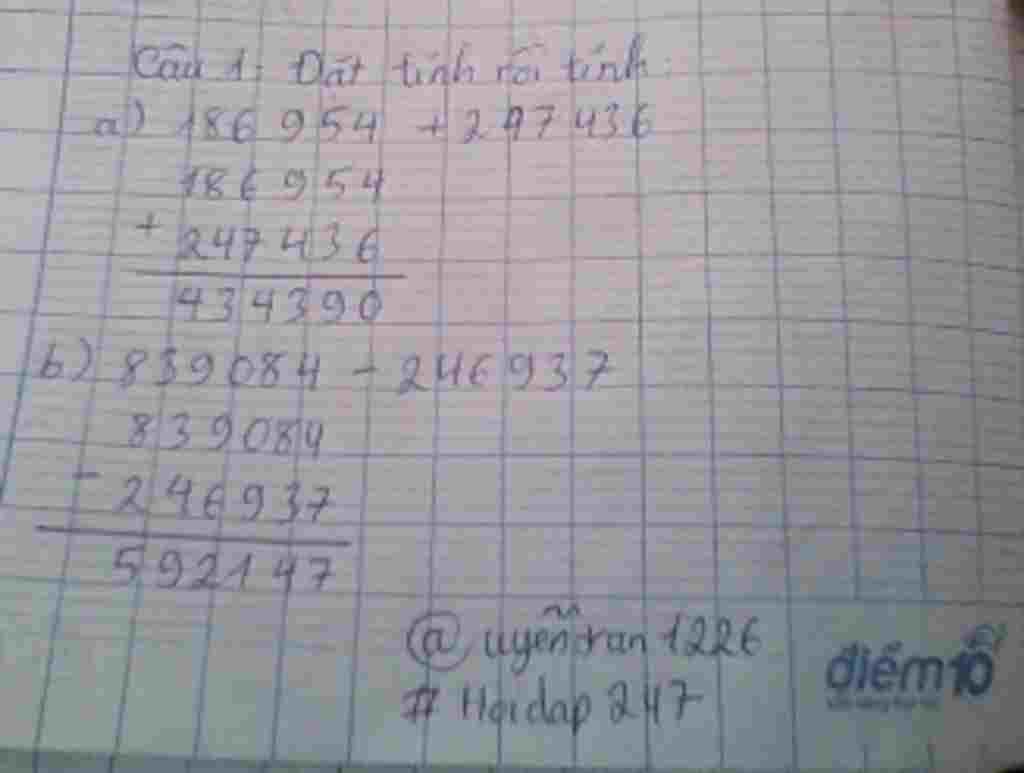 Câu 1: Đặt tính rồi tính:
a) 186 954 + 247 436
186 954
+
247 436
434390
b) 839084 - 246 937
839084
-
246937
592147
@ uyễn tran 1226
# Hoidap 247
điểm10